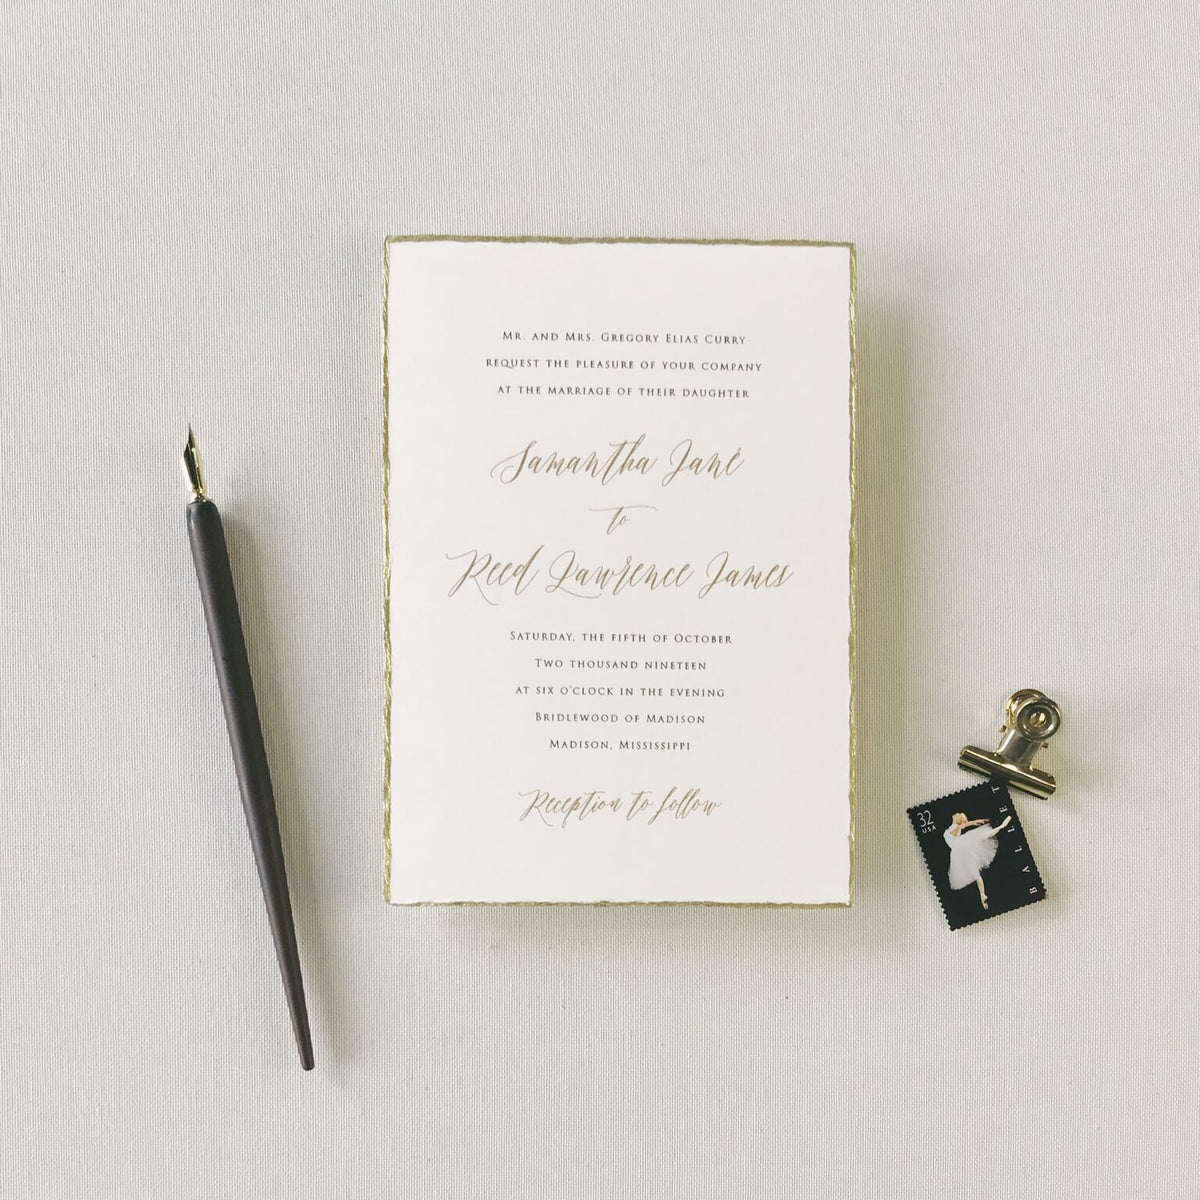 Mr. and Mrs. Gregory Elias Curry
request the pleasure of your company
at the marriage of their daughter
Samantha Jane
to
Reed Lawrence James
Saturday, the fifth of October
Two thousand nineteen
at six o'clock in the evening
Bridlewood of Madison
Madison, Mississippi
Reception to follow
32
USA
BALLET